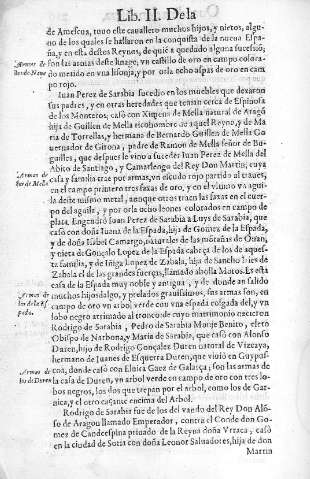 Lib. II. De la
de Amescua, tuuo este cauallero muchos hijos, y nietos, algu-
no de los quales se hallaron en la conquista de la nueua Espa-
ña, y en esta destos Reynes, de quié a quedado alguna sucesió,
Armas de
son las armas deste linage, vn castillo de oro en campo colora-
do metido en vna lisonja, y por orla ocho aspas de oro en cam
po rojo.
Iuan Perez de Sarabia sucedio en los muebles que dexaron
sus padres, y en otras heredades que tenian cerca de Espinosa
de los Monteros, casó con Ximena de Mella natural de Aragó
hija de Guillen de Mella ricohombre de aquel Reyno, y de Ma
ria de Torrellas, y hermana de Bernardo Guillen de Mella Go
uernador de Girona, padre de Ramon de Mella señor de Bu-
guilles, que despues le vino a suceder Iuan Perez de Mella del
Abito de Santiago, y Camarlengo del Rey Don Martin; cuya
Armas de
los de Mella
casa y familia trae por armas, vn escudo rojo partido al traues,
en el campo primero tres faxas de oro, y en el vltimo va agui-
la deste mismo metal, aunque otros traen las faxas en el cuer-
po del aguila, y por orla ocho leones colorados en campo de
plata. Engendró Iuan Perez de Sarabia a Luys de Sarabia, que
casó con doña Iuana de la Espada, hija de Gomez de la Espada,
y de doña Isabel Camargo, naturales de las mótañas de Oñan,
y nieta de Gonçalo Lopez de la Espada cabeça de los de aque-
lla familia, y de Iñiga Lopez de Zabala, hija de Sancho Iñes de
Zabala el de las grandes fuerças, llamado abolla Moros. Es esta
casa de la Espada muy noble y antigua, y de donde an salido
Armas de
los de la Es
pada.
muchos hijosdalgo, y prelados grauissimos, sus armas son, en
campo de oro vn arbol verde con vna espada colgada del, y vn
lobo negro atrimado al tronco: de cuyo matrimonio nacieron
Rodrigo de Sarabia, Pedro de Sarabia Monje Benito, eleto
Obispo de Narbona, y Maria de Sarabia, que casó con Alonso
Duren, hijo de Rodrigo Gonçalez Duren natural de Vizcaya,
hermano de Iuanes de Esquerra Duren, que viuió en Guypus-
Armas de
los de Duren
coa, donde casó con Eluira Gaez de Galarça; son las armas de
la casa de Duren, vn arbol verde en campo de oro con tres lo-
bos negros, los dos que trepan por el arbol, como los de Gar-
nica, y el otro cayante encima del Arbol.
Rodrigo de Sarabia fue de los del vando del Rey Don Aló-
so de Aragou llamado Emperador, contra el Conde don Go-
mez de Candeespina priuado de la Reyna doña Vrraca, casó
en la ciudad de Soria con doña Leonor Saluadores, hija de don
Martin